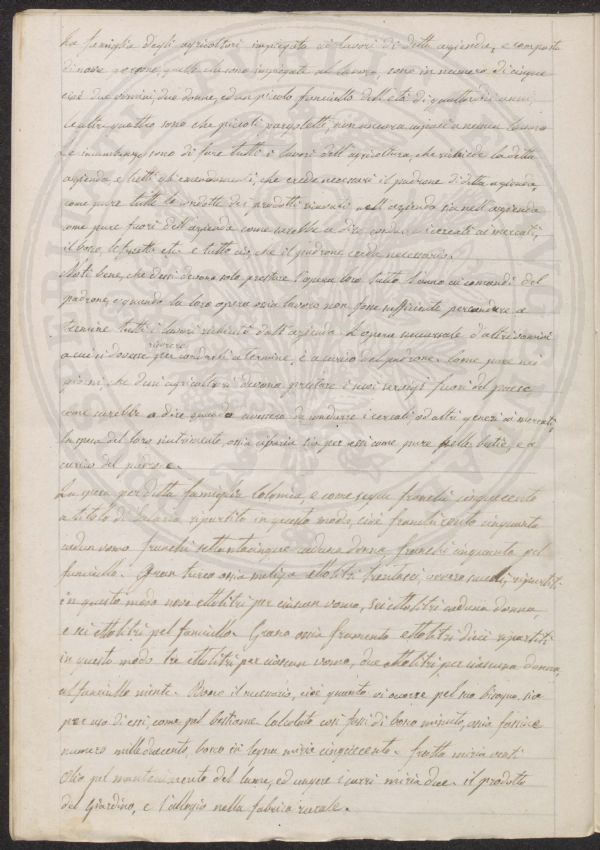 La famiglia degli agricoltori impiegata ai lavori di detta azienda, è composta
di nove persone, quelle che sono impiegate al lavoro, sono in numero di cinque
cioè due uomini, due donne, ed un piccolo fanciullo dell'età di quattordici anni,
le altre quattro sono che piccoli ragazzetti, non ancora a nessun lavoro
Le incumbenze sono di fare tutti i lavori dell'agricoltura, che richiede la detta
azienda, e tutti gli emendamenti, che crede necessari il padrone di detta azienda,
come pure tutte le condotte dei prodotti ricavati nell'azienda sia nell'azienda
come pure fuori dell'azienda come sarebbe a dire condurre i cereali ai mercati,
il bosco, le etc. e tutto ciò, che il padrone crede necessario.
Noti bene, che dessi devono solo prestare l'opera loro tutto l'anno ai comandi del
padrone, e quando la loro opera ossia lavoro non fosse sufficiente per condurre a
termine tutti i lavori richiesti dall'azienda. L'opera succursale d'altri uomini
a cui si dovesse ricorrere per condurli a termine, è a carico del padrone. Come pure nei
giorni che dessi agricoltori devono prestare i suoi servigi fuori del paese,
come sarebbe a dire quando avessero da condurre i cereali od altri generi ai mercati,
la spesa del loro nutrimento, ossia cibaria sia per essi come pure delle bestie, è a
carico del padrone.
La paga per detta famiglia colonica, è come segue franchi cinquecento
a titolo di salario ripartito in questo modo, cioè franchi cento cinquanta
cadun uomo franchi settantacinque caduna donna, franchi cinquanta pel
fanciullo. Gran turco ossia meliga ettolitri trentasei, ripartiti
in questo modo nove ettolitri per ciascun uomo, sei ettolitri caduna donna,
e sei ettolitri pel fanciullo. Grano ossia frumento ettolitri dieci ripartiti
in questo modo tre ettolitri per ciascun uomo, due ettolitri per ciascuna donna,
al fanciullo niente. Bosco il necessario, cioè quanto vi occorre pel suo bisogno, sia
per uso di essi, come pel bestiame. Calcolato così fassi di bosco minuto, ossia fascine
numero mille duecento, bosco in legna miria cinquecento. frutta miria venti
Olio pel mantenimento del lume, ed ungere i carri miria due. il prodotto
del Giardino, e l'alloggio nella fabrica rurale.